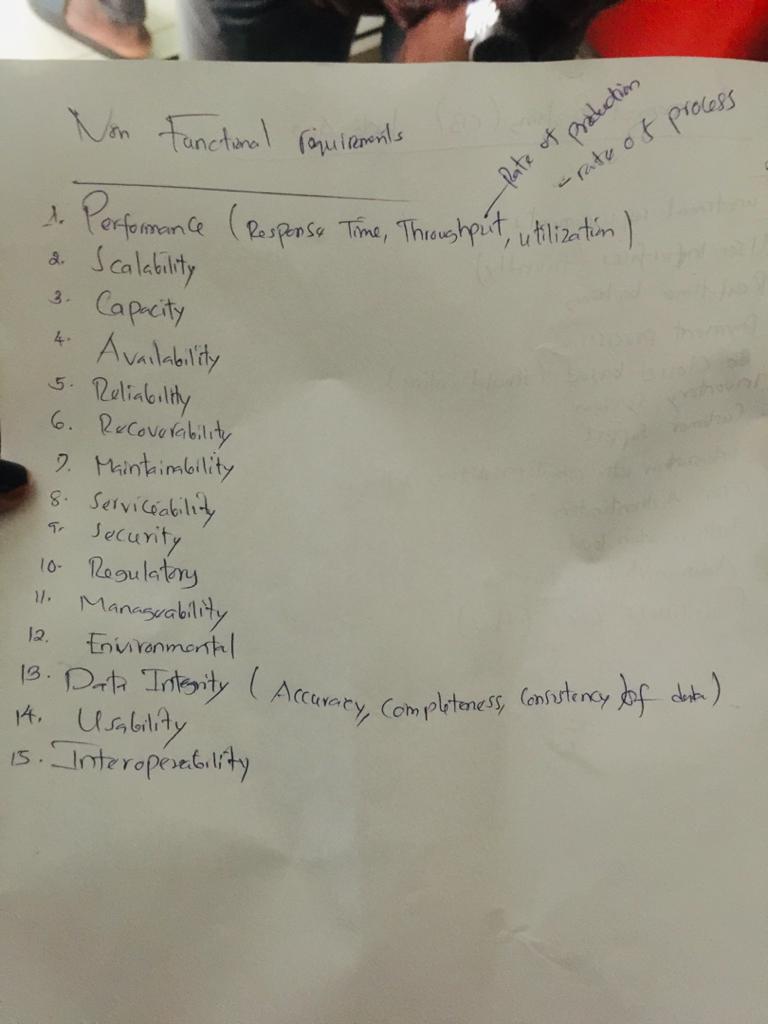 Non Functional requirements
Rate of production
- rate of process
1. Performance (Response Time, Throughput, utilization)
2. Scalability
3. Capacity
4. Availability
5. Reliability
6. Recoverability
7. Maintainability
8. Serviceability
9. Security
10. Regulatory
11. Manageability
12. Environmental
13. Data Integrity (Accuracy, Completeness, Consistency of data)
14. Usability
15. Interoperability